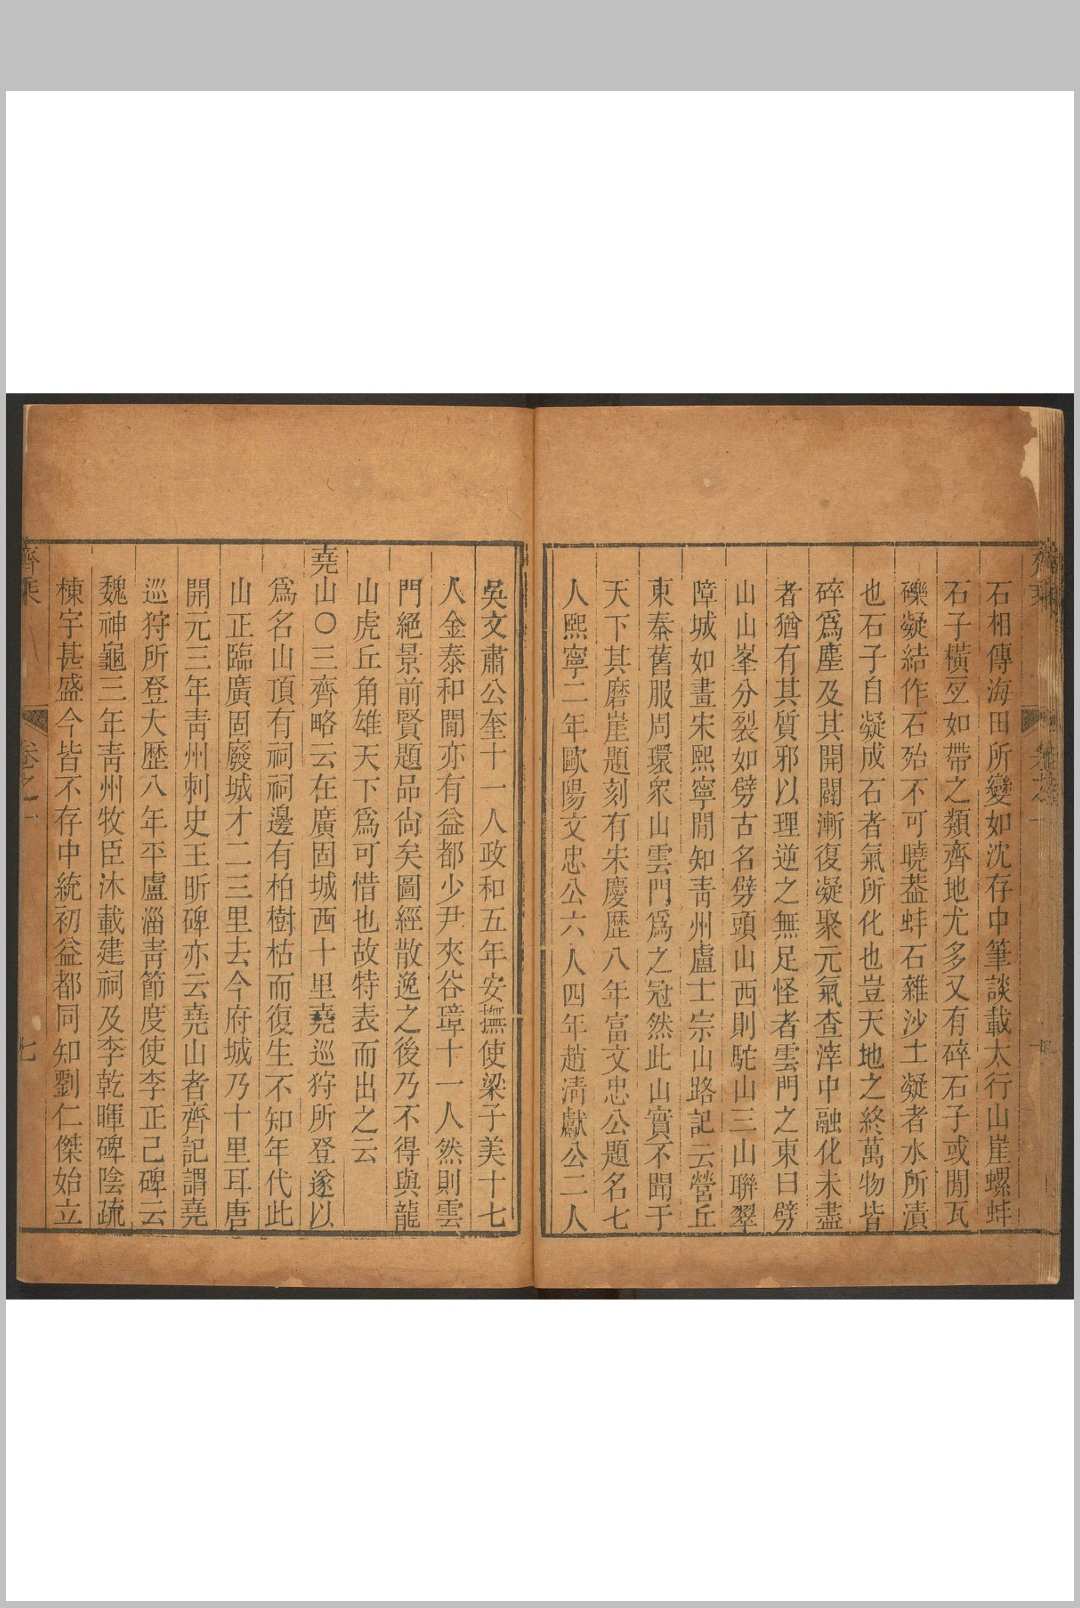 石相傳海田所變如沈存中筆談載太行山崖螺蚌
石子橫亙如帶之類齊地尤多又有碎石子或閒瓦
礫凝結作石殆不可曉葢蚌石雜沙土凝者水所漬
也石子自凝成石者氣所化也豈天地之終萬物皆
碎爲塵及其開闢漸復凝聚元氣查滓中融化未盡
者猶有其質邪以理逆之無足怪者雲門之東曰劈
山山峯分裂如劈古名劈頭山西則駝山三山聯翠
障城如畫宋熙寧閒知靑州盧士宗山路記云營丘
東秦舊服周環衆山雲門爲之冠然此山實不聞于
天下其磨崖題刻有宋慶歷八年富文忠公題名七
人熙寧二年歐陽文忠公六人四年趙淸獻公二人
吳文肅公奎十一人政和五年安撫使梁子美十七
人金泰和閒亦有益都少尹夾谷璋十一人然則雲
門絕景前賢題品尙矣圖經散逸之後乃不得與龍
山虎丘角雄天下爲可惜也故特表而出之云
堯山〇三齊略云在廣固城西十里堯巡狩所登遂以
爲名山頂有祠祠邊有柏樹枯而復生不知年代此
山正臨廣固廢城才二三里去今府城乃十里耳唐
開元三年靑州刺史王昕碑亦云堯山者齊記謂堯
巡狩所登大歷八年平盧淄靑節度使李正己碑云
魏神龜三年靑州牧臣沐載建祠及李乾暉碑陰疏
棟宇甚盛今皆不存中統初益都同知劉仁傑始立
齊乘
卷之一
七